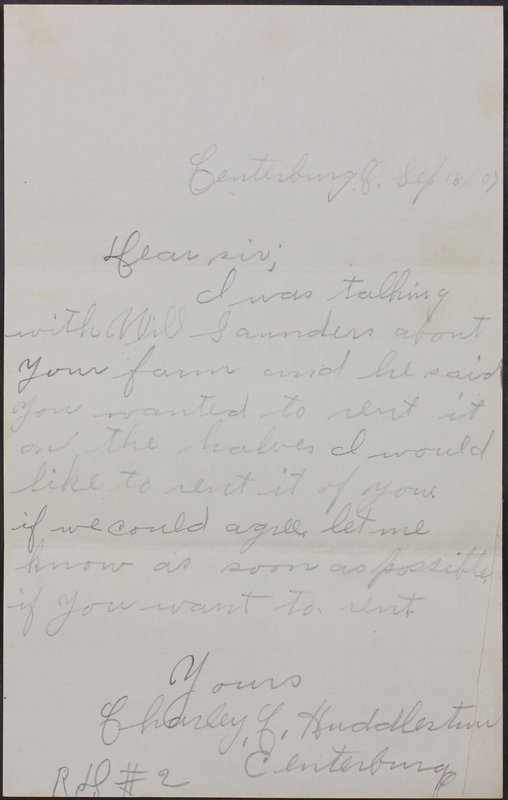 Centerburg, O. Sep 18, 07
Dear sir;
I was talking
with Will Saunders about
your farm and he said
you wanted to rent it
on the halves I would
like to rent it of you.
if we could agree. let me
know as soon as possible.
if you want to rent
Yours
Charley, C, Huddleston
Centerburg
R #2